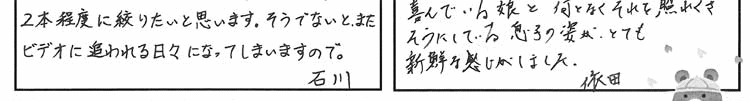 2本程度に絞りたいと思います。そうでないと、また
ビデオに追われる日々になってしまいますので。
石川
喜んでいる娘と何となくそれを照れくさ
そうにしている息子の姿が、とても
新鮮な感じがしました。
依田